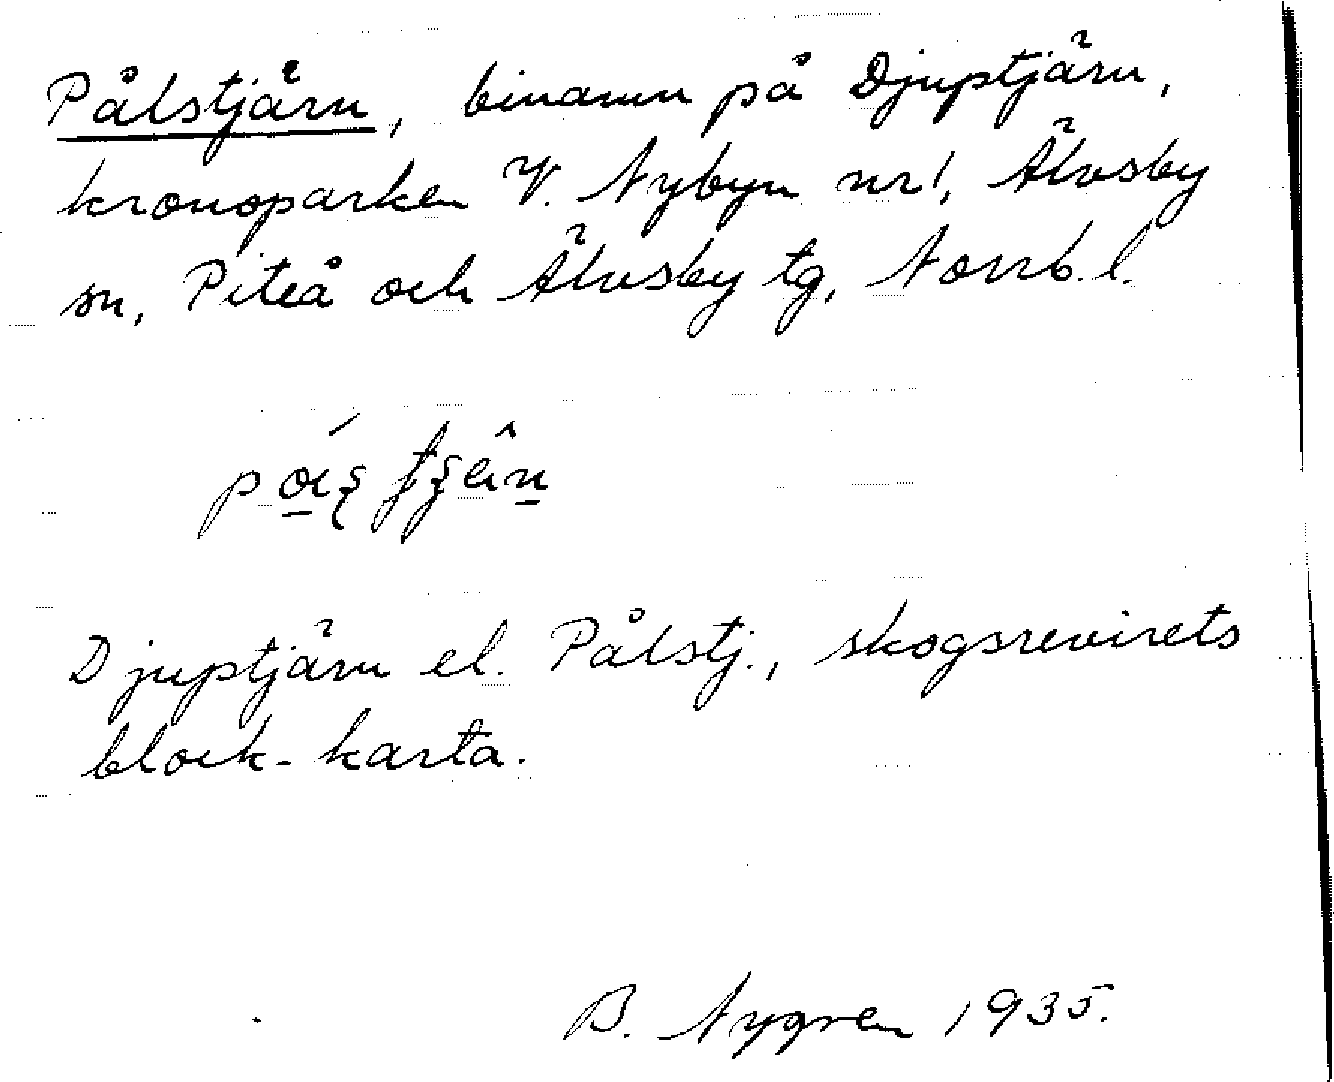 Pålstjärn, binamn på Djuptjärn,
kronoparken V. Nybyn nr 1, Älvsby
sn, Piteå och Älvsby tg, Norrb. l.
Djuptjärn el. Pålstj., skogsrevirets
block-karta.
B. Nygren 1935.